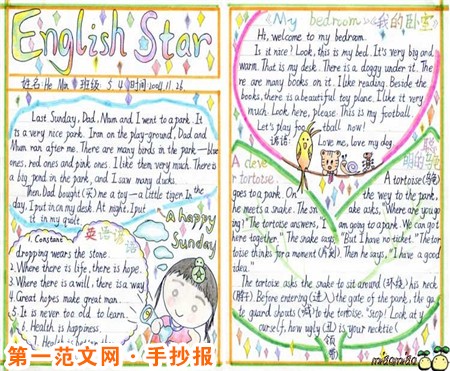 English Star
姓名 He Min 班级 5.4 时间 2004.11.26.
Last Sunday, Dad, Mum and I went to a park. It
is a very nice park. I ran on the play-ground, Dad and
Mum ran after me. There are many birds in the park—blue
ones, red ones and pink ones. I like them very much. There is a
big pond in the park, and I saw many ducks.
Then, Dad bought (买) me a toy—a little tiger. In the
day, I put it on my desk. At night, I put
it in my quilt.
A happy
Sunday
英语谚语
1. Constant
dropping wears the stone.
2. Where there is life, there is hope.
3. Where there is a will, there is a way
4. Great hopes make great man.
5. It is never too old to learn.
6. Health is happiness.
7.
My bedroom 我的卧室
Hi, welcome to my bedroom.
Is it nice? Look, this is my bed. It's very big and
warm. That is my desk. There is a doggy under it. The
re are many books on it. I like reading. Beside the
books, there is a beautiful toy plane. I like it very
much. Look here, please. This is my football.
Let's play football now!
谚语: Love me, love my dog.
A clever
tortoise
聪明的乌龟
A tortoise (乌龟)
goes to a park. On the way to the park,
he meets a snake. The snake asks, "Where are you go
ing?" The tortoise answers, "I am going to a park. We can go t
here together." The snake says, "But I have no ticket." The tor
toise thinks for a moment (片刻). Then he says, "I have a good
idea."
The tortoise asks the snake to sit around (环绕) his neck
(脖子). Before entering (进入) the gate of the park, the ga
te guard shouts (喊) to the tortoise. "Stop! Look at y
ourself, how ugly (丑) is your necktie (领带)!
miaomiao
第一范文网·手抄报